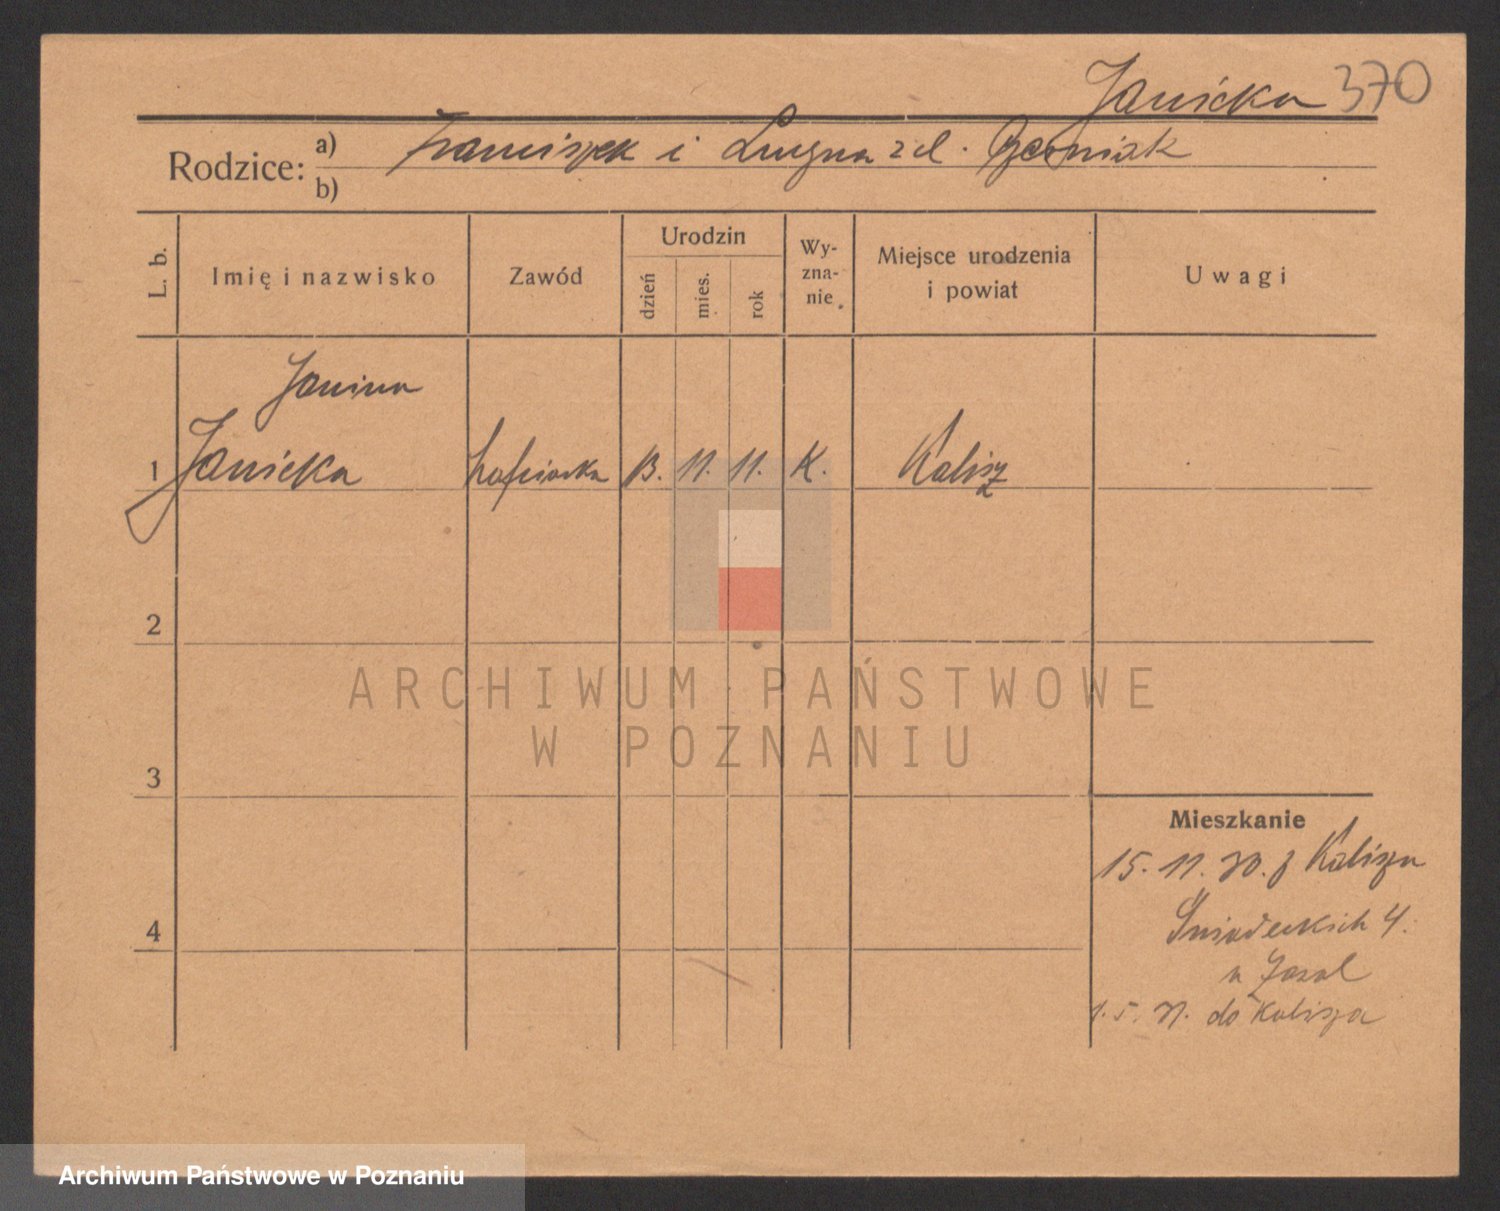 Janicka 370
Rodzice: a) Franciszek i
b)
L. b.
Imię i nazwisko
Zawód
Urodzin
dzień
mies.
rok
Wy-
zna-
nie
Miejsce urodzenia
i powiat
Uwagi
Janina
1 Janicka hafciarka 13. 11. 11. K. Kalisz
2
3
4
Mieszkanie
15. 11. 30. z Kalisza
Śniadeckich 4.
u
1. 5. 31. do Kalisza
ARCHIWUM PAŃSTWOWE
W POZNANIU
Archiwum Państwowe w Poznaniu